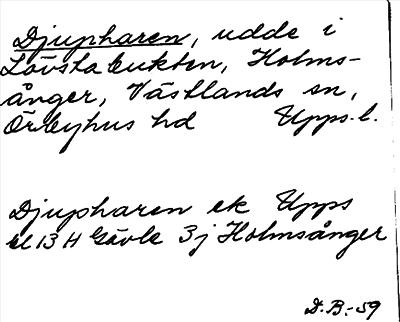 Djupharen, udde i
Lövstabukten, Holms-
ånger, Västlands sn,
Örbyhus hd Upps. l.
Djupharen ek Upps
bl 13 H Gävle 3j Holmsånger
D.B.-59